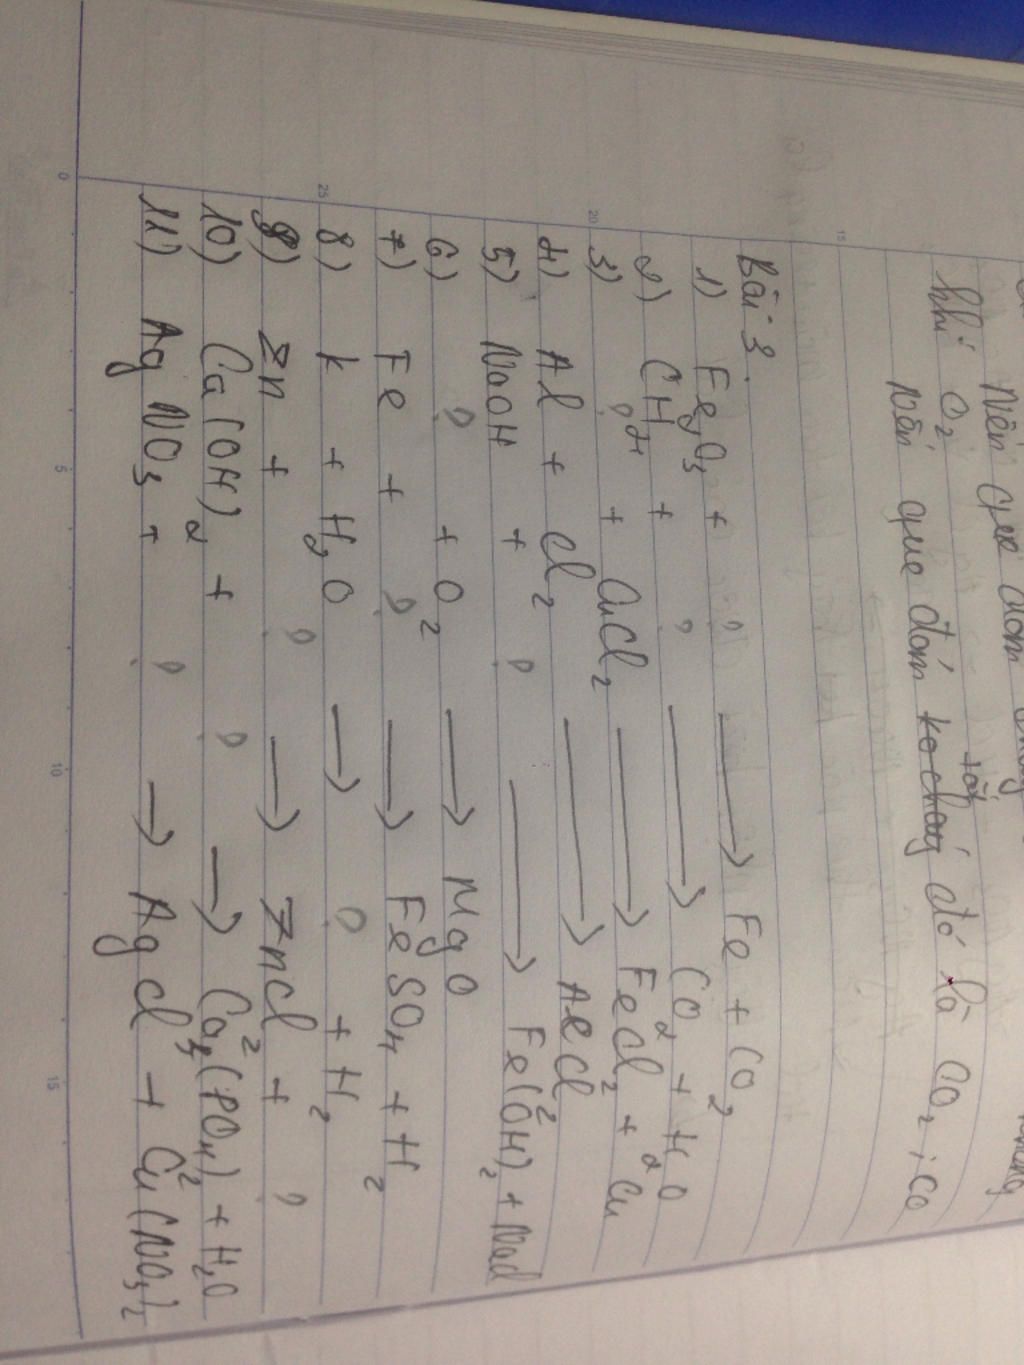 Nến que đóm
khí O2
tắt
Nến que đóm ko cháy đó là CO2, CO
Bài 3.
1) Fe2O3 + ? → Fe + CO2
2) CH4 + ? → CO2 + H2O
3) ? + CuCl2 → FeCl2 + Cu
4) Al + Cl2 → AlCl
5) NaOH + ? → Fe(OH)2 + NaCl
6) ? + O2 → MgO
7) Fe + ? → FeSO4 + H2
8) K + H2O → ? + H2
9) Zn + ? → ZnCl2 + ?
10) Ca(OH)2 + ? → Ca3(PO4)2 + H2O
11) AgNO3 + ? → AgCl + Cu(NO3)2
0 5 10 15
15
20
25